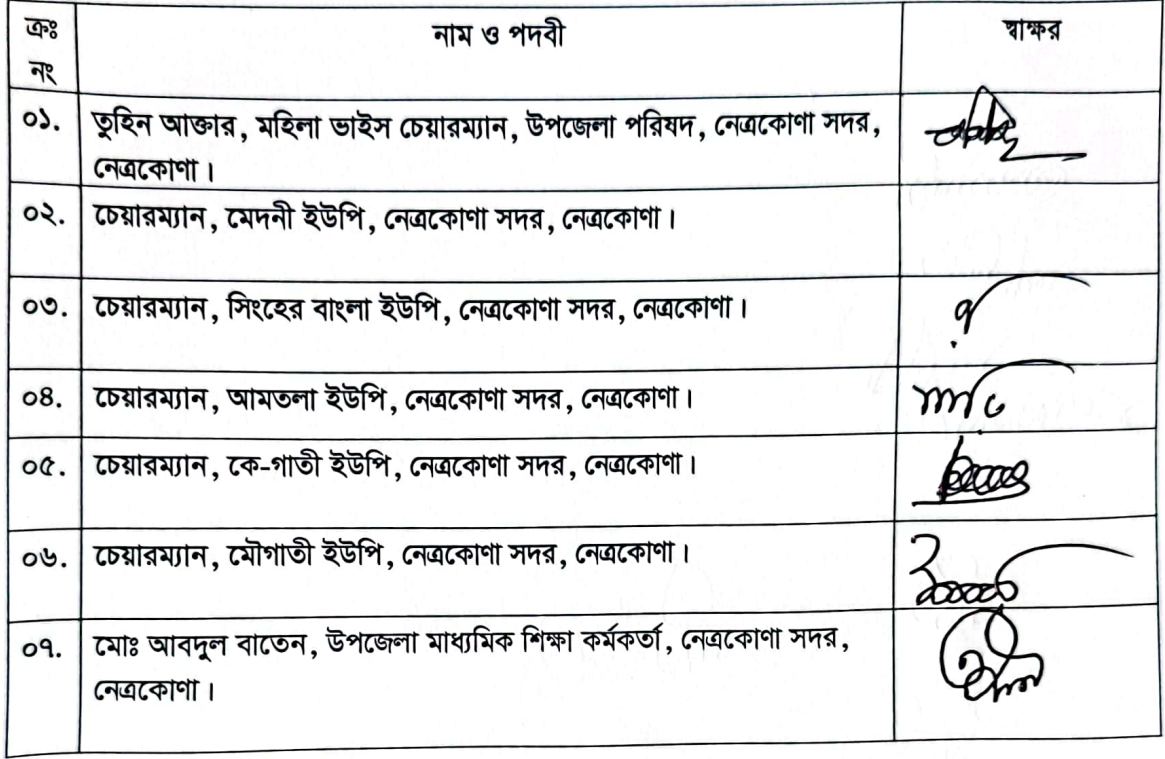 ক্রঃ নং নাম ও পদবী স্বাক্ষর
০১. তুহিন আক্তার, মহিলা ভাইস চেয়ারম্যান, উপজেলা পরিষদ, নেত্রকোণা সদর,
নেত্রকোণা।
০২. চেয়ারম্যান, মেদনী ইউপি, নেত্রকোণা সদর, নেত্রকোণা।
০৩. চেয়ারম্যান, সিংহের বাংলা ইউপি, নেত্রকোণা সদর, নেত্রকোণা।
০৪. চেয়ারম্যান, আমতলা ইউপি, নেত্রকোণা সদর, নেত্রকোণা।
০৫. চেয়ারম্যান, কে-গাতী ইউপি, নেত্রকোণা সদর, নেত্রকোণা।
০৬. চেয়ারম্যান, মৌগাতী ইউপি, নেত্রকোণা সদর, নেত্রকোণা।
০৭. মোঃ আবদুল বাতেন, উপজেলা মাধ্যমিক শিক্ষা কর্মকর্তা, নেত্রকোণা সদর,
নেত্রকোণা।